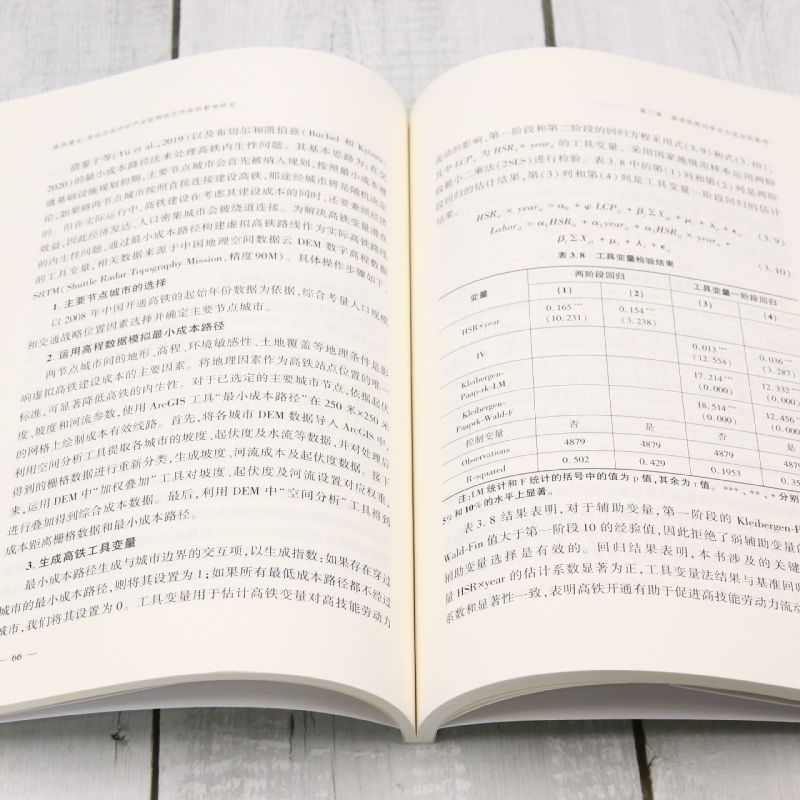 借鉴于等(Yu et al.,2019)以及布切尔和凯伯兹(Büchel 和 Kyburz,
2020)的最小成本路径法来处理高铁内生性问题。其基本思路为:在交
通基础设施规划初期,主要节点城市会首先被纳入规划,按照最小成本理
论,如果将两节点城市按照直接连接建设高铁,那途经城市将是随机决定
的。但在实际运行中,高铁建设在考虑其建设成本的同时,还要兼顾经济
效益,因此经济发达、人口密集城市会被绕道连接。为解决高铁变量潜在
的内生性问题,通过最小成本路径构建虚拟高铁路线作为实际高铁路线
的工具变量,相关数据来源于中国地理空间数据云 DEM 数字高程数据
SRTM(Shuttle Radar Topography Mission,精度90M)。具体操作步骤如下。
1. 主要节点城市的选择
以 2008 年中国开通高铁的起始年份数据为依据,综合考量人口规模
和交通战略位置因素选择并确定主要节点城市。
2. 运用高程数据模拟最小成本路径
两节点城市间的地形、高程、环境敏感性、土地覆盖等地理条件是影
响虚拟高铁建设成本的主要因素。将地理因素作为高铁站点位置的唯一
标准,可显著降低高铁的内生性。对于已选定的主要城市节点,依据起伏
度、坡度和河流参数,使用 ArcGIS 工具“最小成本路径”在 250 米×250 米
的网格上绘制成本有效线路。首先,将各城市 DEM 数据导入 ArcGIS 中,
利用空间分析工具提取各城市的坡度、起伏度及水流等数据,并对处理后
得到的栅格数据进行重新分类,生成坡度、河流成本及起伏度数据。接下
来,运用 DEM 中“加权叠加”工具对坡度、起伏度及河流设置对应权重,
进行叠加得到综合成本数据。最后,利用 DEM 中“空间分析”工具得到
成本距离栅格数据和最小成本路径。
3. 生成高铁工具变量
最小成本路径生成与城市边界的交互项,以生成指数;如果存在穿过
城市的最小成本路径,则将其设置为 1;如果所有最低成本路径都不经过
城市,我们将其设置为 0。工具变量用于估计高铁变量对高技能劳动力
— 66 —
流动的影响,第一阶段和第二阶段的回归方程采用式(3.9)和式(3.10),
其中 LCP 为 HSR 的工具变量。采用国家地级城市样本运用两阶
段最小二乘法(2SLS)进行检验。表3.8 中的第(1)列和第(2)列是两阶
段回归的估计结果,第(3)列和第(4)列是工具变量一阶段回归的估计
结果。
HSR × year = α₀ + φ LCP + βⱼΣX + μ + λ + ε (3.9)
Labor = α₀HSR + α₁year + α₂HSR × year +
βⱼΣX + μ + λ + ε (3.10)
表3.8 工具变量检验结果
变量 两阶段回归 工具变量一阶段回归
(1) (2) (3) (4)
HSR×year 0.165*** 0.154***
(10.231) (3.238)
IV 0.013*** 0.036***
(12.554) (3.287)
Kleibergen-Paaprk-LM 17.214*** 12.332***
(0.000) (0.000)
Kleibergen-Paaprk-Wald-F 18.514*** 12.456**
(0.000) (0.000
控制变量 否 是 否
Observations 4879 4879 4879 4879
R-squared 0.502 0.429 0.1953 0.35
注:LM 统计和 F 统计的括号中的值为 p 值,其余为 t 值。***、**、* 分别
5%和10%的水平上显著。
表 3.8 结果表明,对于辅助变量,第一阶段的 Kleibergen-
Wald-Fin 值大于第一阶段 10 的经验值,因此拒绝了弱辅助变量的
辅助变量选择是有效的。回归结果表明,本书涉及的关键
量 HSR×year 的估计系数显著为正,工具变量法结果与基准回
系数和显著性一致,表明高铁开通有助于促进高技能劳动力流动